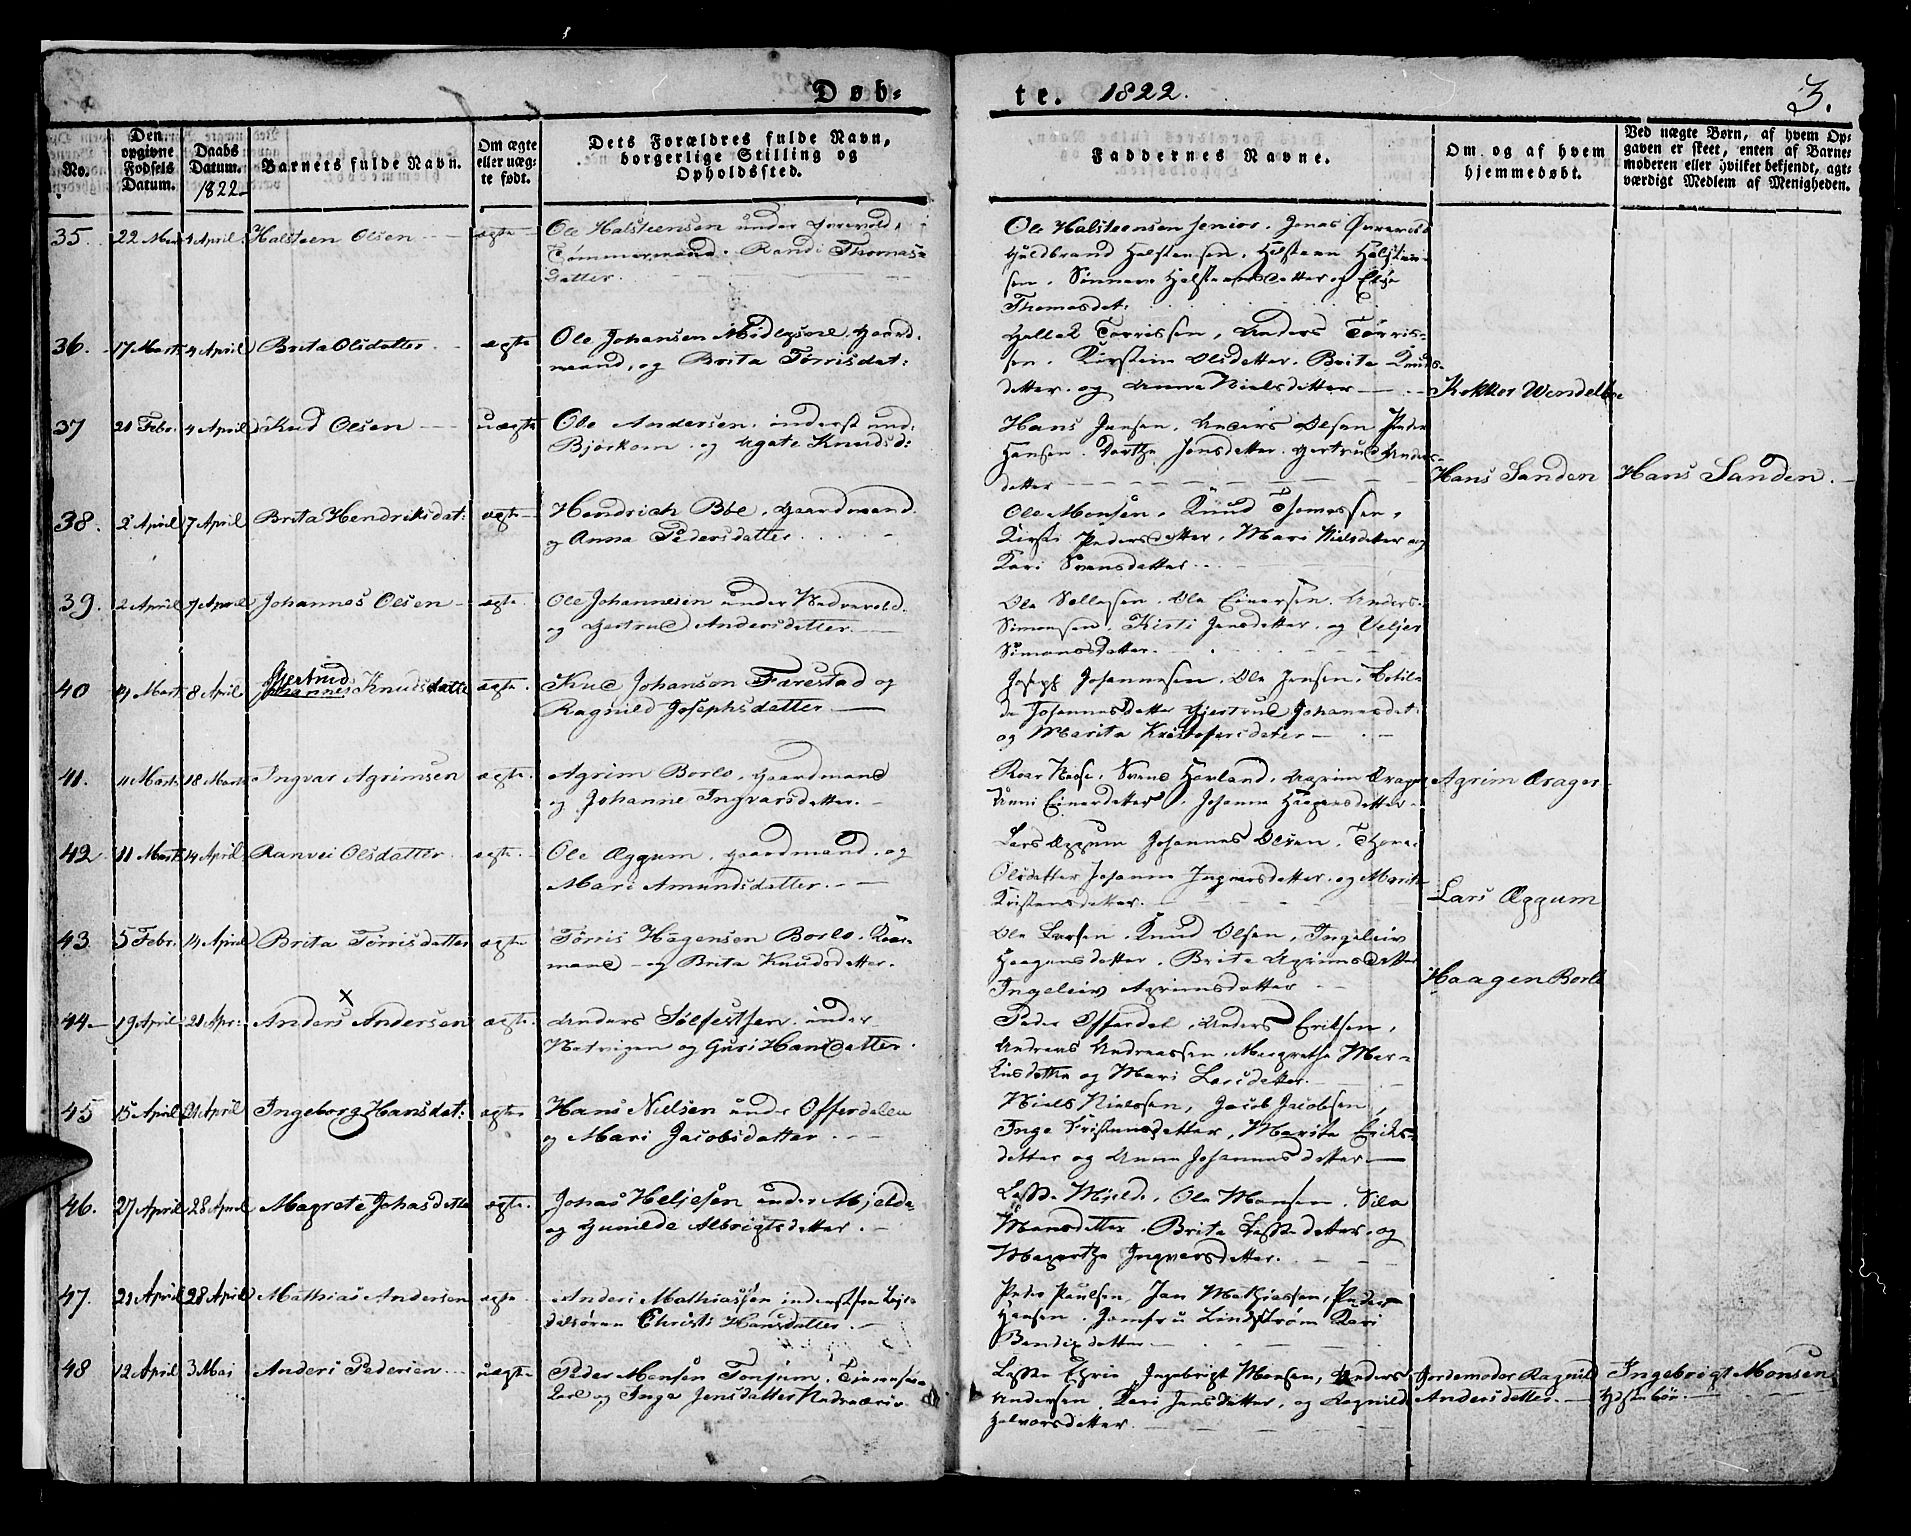 Døb-
te. 1822.
3.
No.
Den opgivne Fødsels Datum.
Daabs Datum. 1822
Barnets fulde Navn.
Om ægte eller uægte født.
Dets Forældres fulde Navn, borgerlige Stilling og Opholdssted.
Faddernes Navne.
Om og af hvem hjemmedøbt.
Ved uægte Børn, af hvem Opgaven er skeet, enten af Barnemoderen eller hvilket bekjendt, agtværdigt Medlem af Menigheden.
35. 22 Mart April Halsteen Olsen ægte
Ole Halsteensen under
Tømmermand. Randi Thomas-
datter.
Ole Halsteensen senior. Jonas
Huldbrand Halstensen. Halsteen Halsteen-
sen. Halsteensdatter og Elsje
Thomasdat:
36. 17 Mart 4 April Brita Olsdatter ægte
Ole Johansen Gaard-
mand, og Brita Tørrisdat:
Hallak Tørrissen, Anders Tørris-
sen. Kirstein Olsdatter. Brita Knuds-
datter. og Anna Nielsdatter
37 21 Febr. 4 April Knud Olsen uægte
Ole Andersen. inderst und:
Bjørkom. og Agate Knudsd:
Hans Jensen. Anders Olsen Peder
Hansen. Dorthe Jensdatter. Gjertrud Anders-
datter
Hans Sanden Hans Sanden.
38. 2 April 7 April Brita Hendriksdat: ægte
Hendrich Bbe, Gaardmand.
og Anna Pedersdatter
Ole Monsen. Knud Thomassen,
Kirsti Pedersdatter, Mari Nielsdatter og
Kari Svensdatter
39. 2 April 7 April Johannes Olsen ægte.
Ole Johannesen under
og Gjertrud Andersdatter.
Ole Sellesen. Ole Einersen. Anders
Simonsen. Kisti Jensdatter. og
Simonsdatter.
40 14 Mart 8 April Gjertrud Johannes Knudsdatte ægte.
Knud Johanson Farestad og
Ragnild Josephsdatter
Joseph Johannesen. Ole Jensen. Botil-
da Johannesdatter Gjertrud Johannesdat:
og Marita Kristofersdater
41. 11 Marts 18 Marts Ingvar Agrimsen ægte.
Agrim Borlo, Gaardmand
og Johanne Ingvarsdatter.
Roar Svend Hovland. Agrim Ærager
Anni Einersdatter. Johanna Haagensdatter
Agrim Ærager
42 11 Mart. 14 April Ranvei Olsdatter ægte.
Ole Æggum, Gaardmand. og
Mari Amundsdatter.
Lars Æggum Johannes Olsen. Thomas
Olsdatter Johanna Ingvarsdatter. og Marita
Kristensdatter.
Lars Æggum
43 5 Febr. 14 April Brita Tørrisdatter ægte
Tørris Hagensen Borlo.
mand og Brita Knudsdatter.
Ole Larsen. Knud Olsen, Ingeleiv
Haagensdatter. Brita Agrimsdatter
Ingeleiv Agrimsdatter
Haagen Borlo
44 19 April 21 Apr: Anders Andersen ægte.
Anders Sølfestsen. under
Natvigen og Guri Hansdatter.
Peder Offerdal, Anders Eriksen,
Andreas Andreassen. Magrethe Mar-
kusdatter og Mari Larsdatter.
45 15 April 21 April Ingeborg Hansdat: ægte
Hans Nielsen under Offerdalen
og Mari Jacobsdatter.
Niels Nielssen, Jacob Jacobsen,
Inge Kristensdatter, Marita Eriks-
datter og Anna Johannesdatter
46. 27 April 28 April Magrete Johasdatte ægte.
Johas Heljesen under Mjelde
og Gunilde Albrigtsdatter.
Lasse Mjelde. Ole Monsen. Sila
Monsdatter. Brita Lassedatter. og
Magertha Ingversdatter.
47. 21 April 28 April Mathias Andersen ægte
Anders Mathiassen inderst fra Lejr-
dalsøren Christi Hansdatter.
Peder Paulsen, Jan Mathiassen, Peder
Hansen. Jomfru Lindstrøm Kari
Bendixdatter
48 12 April 3 Mai Anders Pedersen uægte
Peder Monsen Tonjum.
og Inga Jensdatter
Lasse Ingebrigt Monsen, Anders
Andersen. Kari Jensdatter, og Ragnild
Halvorsdatter.
Jordemoder Ragnild
Andersdatter.
Ingebrigt Monsen